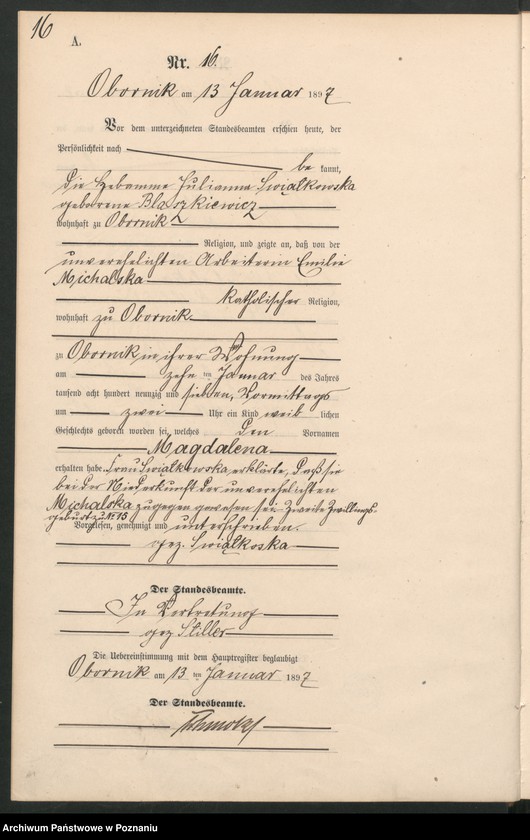 16
A.
Nr. 16.
Obornik am 13 Januar 1897
Vor dem unterzeichneten Standesbeamten erschien heute, der
Persönlichkeit nach
be kannt,
die Hebamme Julianna Swiąlkowska
geborene Blaszkiewicz
wohnhaft zu Obornik
Religion, und zeigte an, daß von der
unverehelichten Arbeiterin Emilie
Michalska
katholischer Religion,
wohnhaft zu Obornik
zu Obornik in ihrer Wohnung
am zehn ten Januar des Jahres
tausend acht hundert neunzig und sieben, Vormittags
um zwei Uhr ein Kind weib lichen
Geschlechts geboren worden sei, welches den Vornamen
Magdalena
erhalten habe. Frau Swiąlkowska erklärte, daß sie
bei der Niederkunft der unverehelichten
Michalska zugegen gewesen sei. Zweite Zwillings-
geburt zu No 15.
Vorgelesen, genehmigt und unterschrieben.
gez. Swiąlkoska
Der Standesbeamte.
In Vertretung
gez Stiller
Die Uebereinstimmung mit dem Hauptregister beglaubigt
Obornik am 13 ten Januar 1897
Der Standesbeamte.
Archiwum Państwowe w Poznaniu